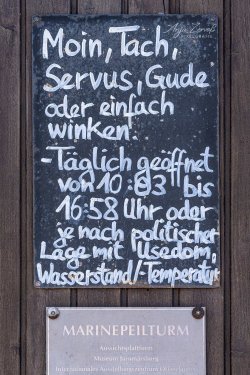 Moin, Tach,
Servus, Gude
oder einfach
winken
-Täglich geöffnet
von 10:03 bis
16:58 Uhr oder
je nach politischer
Lage mit Usedom,
Wasserstand/-Temperatur
MARINEPEILTURM
Aussichtsplattform
Museum